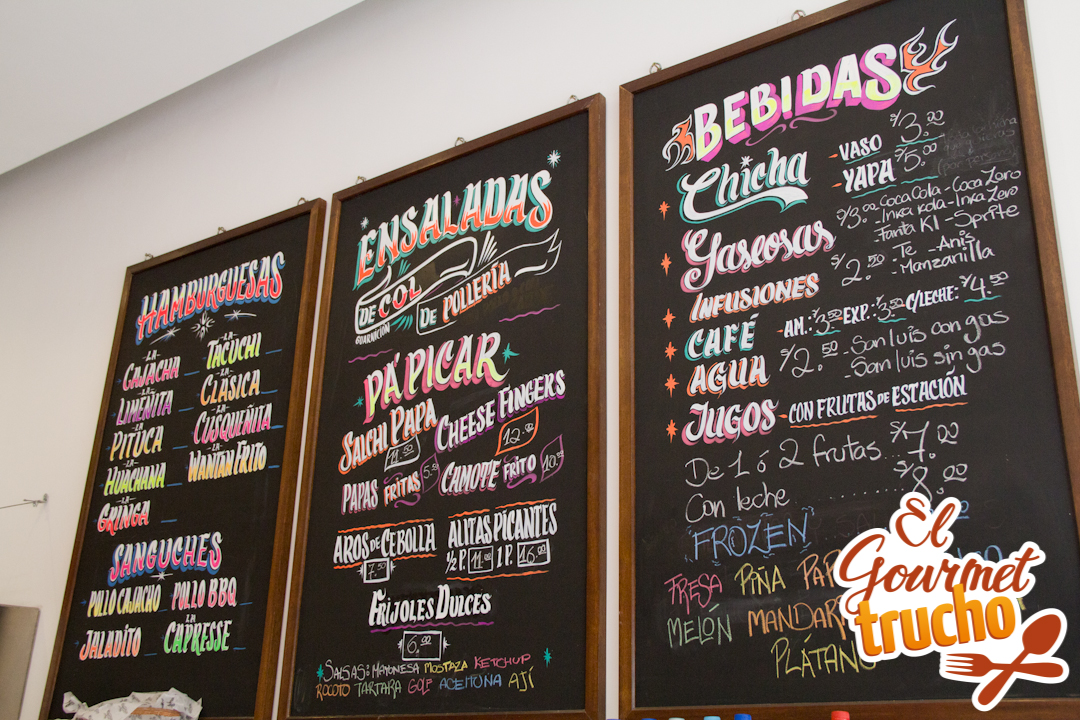 HAMBURGUESAS
-LA-
CAJACHA
-LA-
TACUCHI
-LA-
LIMEÑITA
-LA-
CLÁSICA
-LA-
PITUCA
-LA-
CUSQUEÑITA
-LA-
HUACHANA
-LA-
WANTAN FRITO
-LA-
GRINGA
SANGUCHES
POLLO CAJACHO
POLLO BBQ
JALADITO
CAPRESSE
ENSALADAS
DE COL
GUARNICIÓN
DE POLLERÍA
PA' PICAR
SALCHIPAPA
11.50
CHEESE FINGERS
12.00
PAPAS FRITAS
CAMOTE FRITO
AROS DE CEBOLLA
7.50
ALITAS PICANTES
½ P. 11.00 1 P. 16.00
FRIJOLES DULCES
6.00
SALSAS: MAYONESA MOSTAZA KETCHUP
ROCOTO TARTARA GOLF ACEITUNA AJÍ
BEBIDAS
Chicha
-VASO S/3.00
-YAPA S/5.00
Gaseosas
S/3.00 Coca Cola - Coca Zero
-Inka Kola - Inka Zero
-Fanta KI - Sprite
INFUSIONES
S/2.50 -Te -Anís
-Manzanilla
CAFÉ
-AM.: S/3.50 EXP.: S/3.50 C/LECHE: S/4.50
AGUA
S/2.50 -San Luis con gas
-San Luis sin gas
JUGOS -CON FRUTAS DE ESTACIÓN
De 1 ó 2 frutas... S/7.00
Con leche.......... S/8.00
"FROZEN"
FRESA PIÑA
MELÓN
PLÁTANO
El
Gourmet
trucho